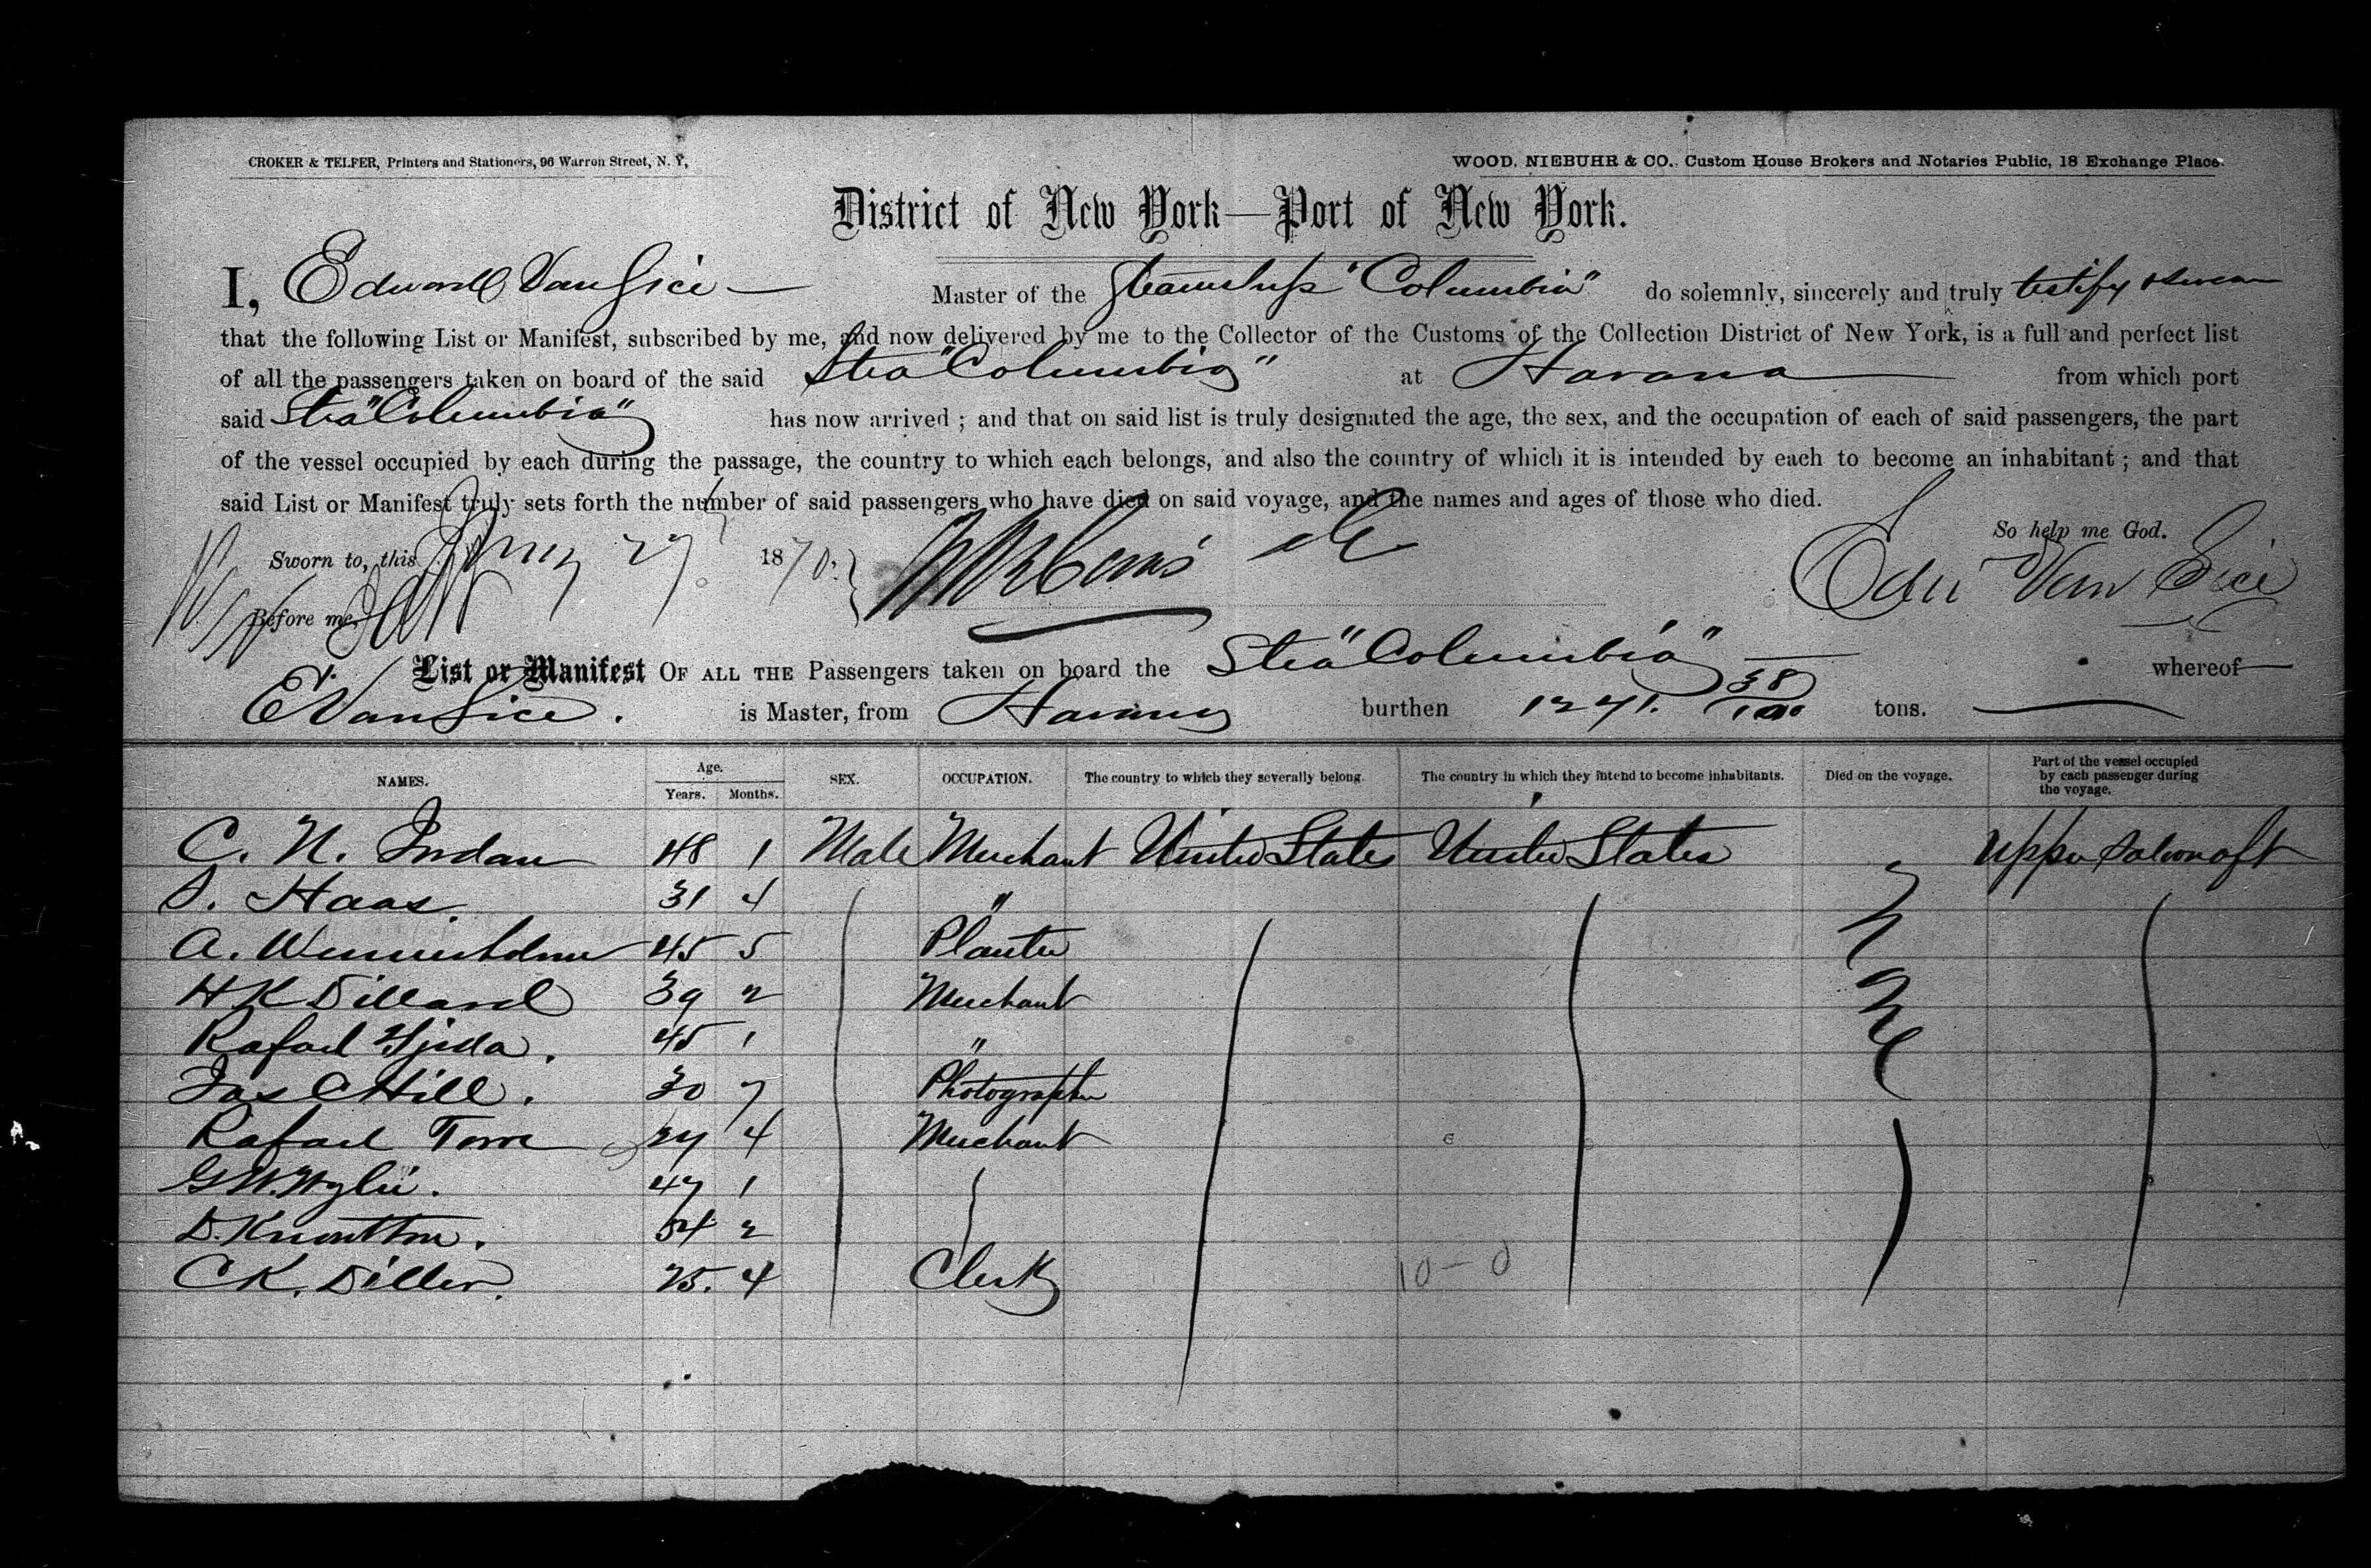 CROKER & TELFER, Printers and Stationers, 96 Warren Street, N. Y.
WOOD, NIEBUHR & CO., Custom House Brokers and Notaries Public, 18 Exchange Place.
District of New York—Port of New York.
I, Edward Van Sice — Master of the Steamship "Columbia" do solemnly, sincerely and truly testify & swear
that the following List or Manifest, subscribed by me, and now delivered by me to the Collector of the Customs of the Collection District of New York, is a full and perfect list
of all the passengers taken on board of the said Stea "Columbia" at Havana from which port
said Stea "Columbia" has now arrived; and that on said list is truly designated the age, the sex, and the occupation of each of said passengers, the part
of the vessel occupied by each during the passage, the country to which each belongs, and also the country of which it is intended by each to become an inhabitant; and that
said List or Manifest truly sets forth the number of said passengers who have died on said voyage, and the names and ages of those who died.
So help me God.
Sworn to, this 27 1870. Edw Van Sice
Before me,
List or Manifest OF ALL THE Passengers taken on board the Stea "Columbia" whereof
E Van Sice. is Master, from Havana burthen 1241. 38/100 tons.
NAMES. Age. Years. Months. SEX. OCCUPATION. The country to which they severally belong. The country in which they intend to become inhabitants. Died on the voyage. Part of the vessel occupied by each passenger during the voyage.
C. N. Jordan 48 1 Male Merchant United States United States Upper Saloon aft
S. Haas. 31 4 "
A. 45 5 Planter
H K Dillard 39 2 Merchant
Rafael 45 1 "
Jas C Hill. 30 7 Photographer
Rafael Torre 4 Merchant
G W. Wylie. 47 1
D. Knowlton. 54 2
C K. Diller. 25. 4 Clerk
None
10 - 0